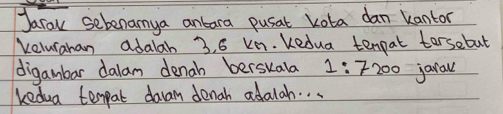 Jarak sebenarnya antara pusat kota dan kantor
kelurahan adalah 3,6 km. Kedua tempat tersebut
digambar dalam denah berskala 1:7200 jarak
kedua tempat dalam denah adalah...